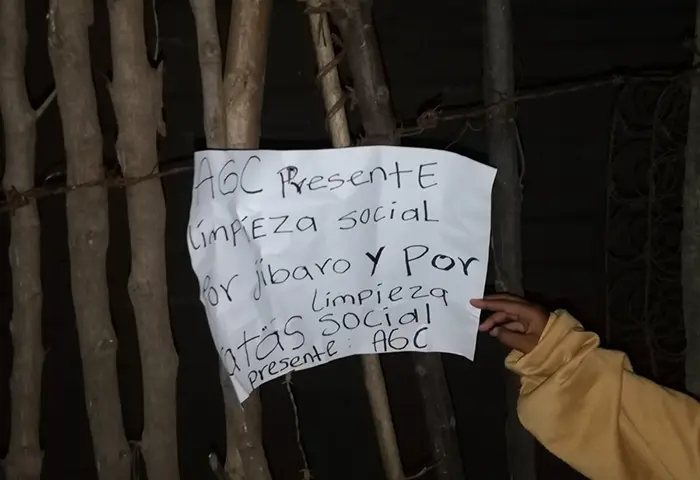 AGC Presente
limpiEza social
Por jibaro Y Por
limpieza
ratas social
presente: AGC